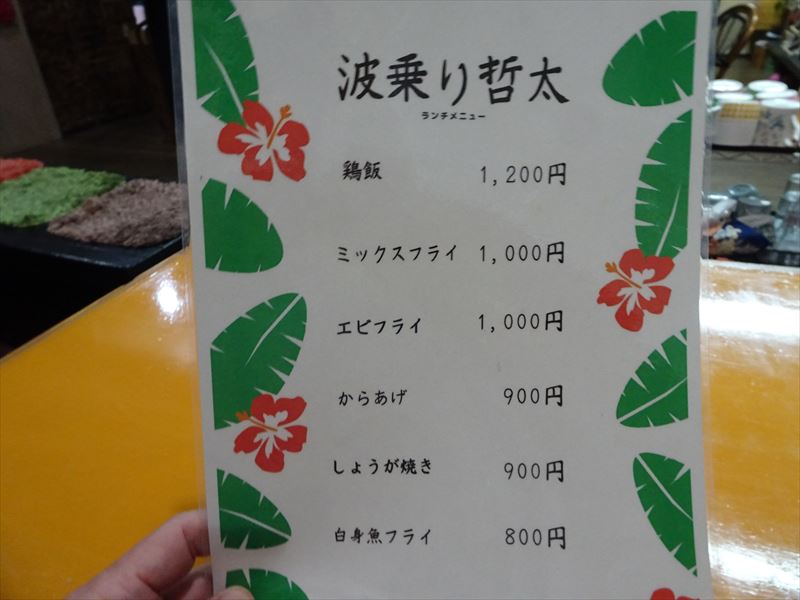 波乗り哲太
ランチメニュー
鶏飯 1,200円
ミックスフライ 1,000円
エビフライ 1,000円
からあげ 900円
しょうが焼き 900円
白身魚フライ 800円